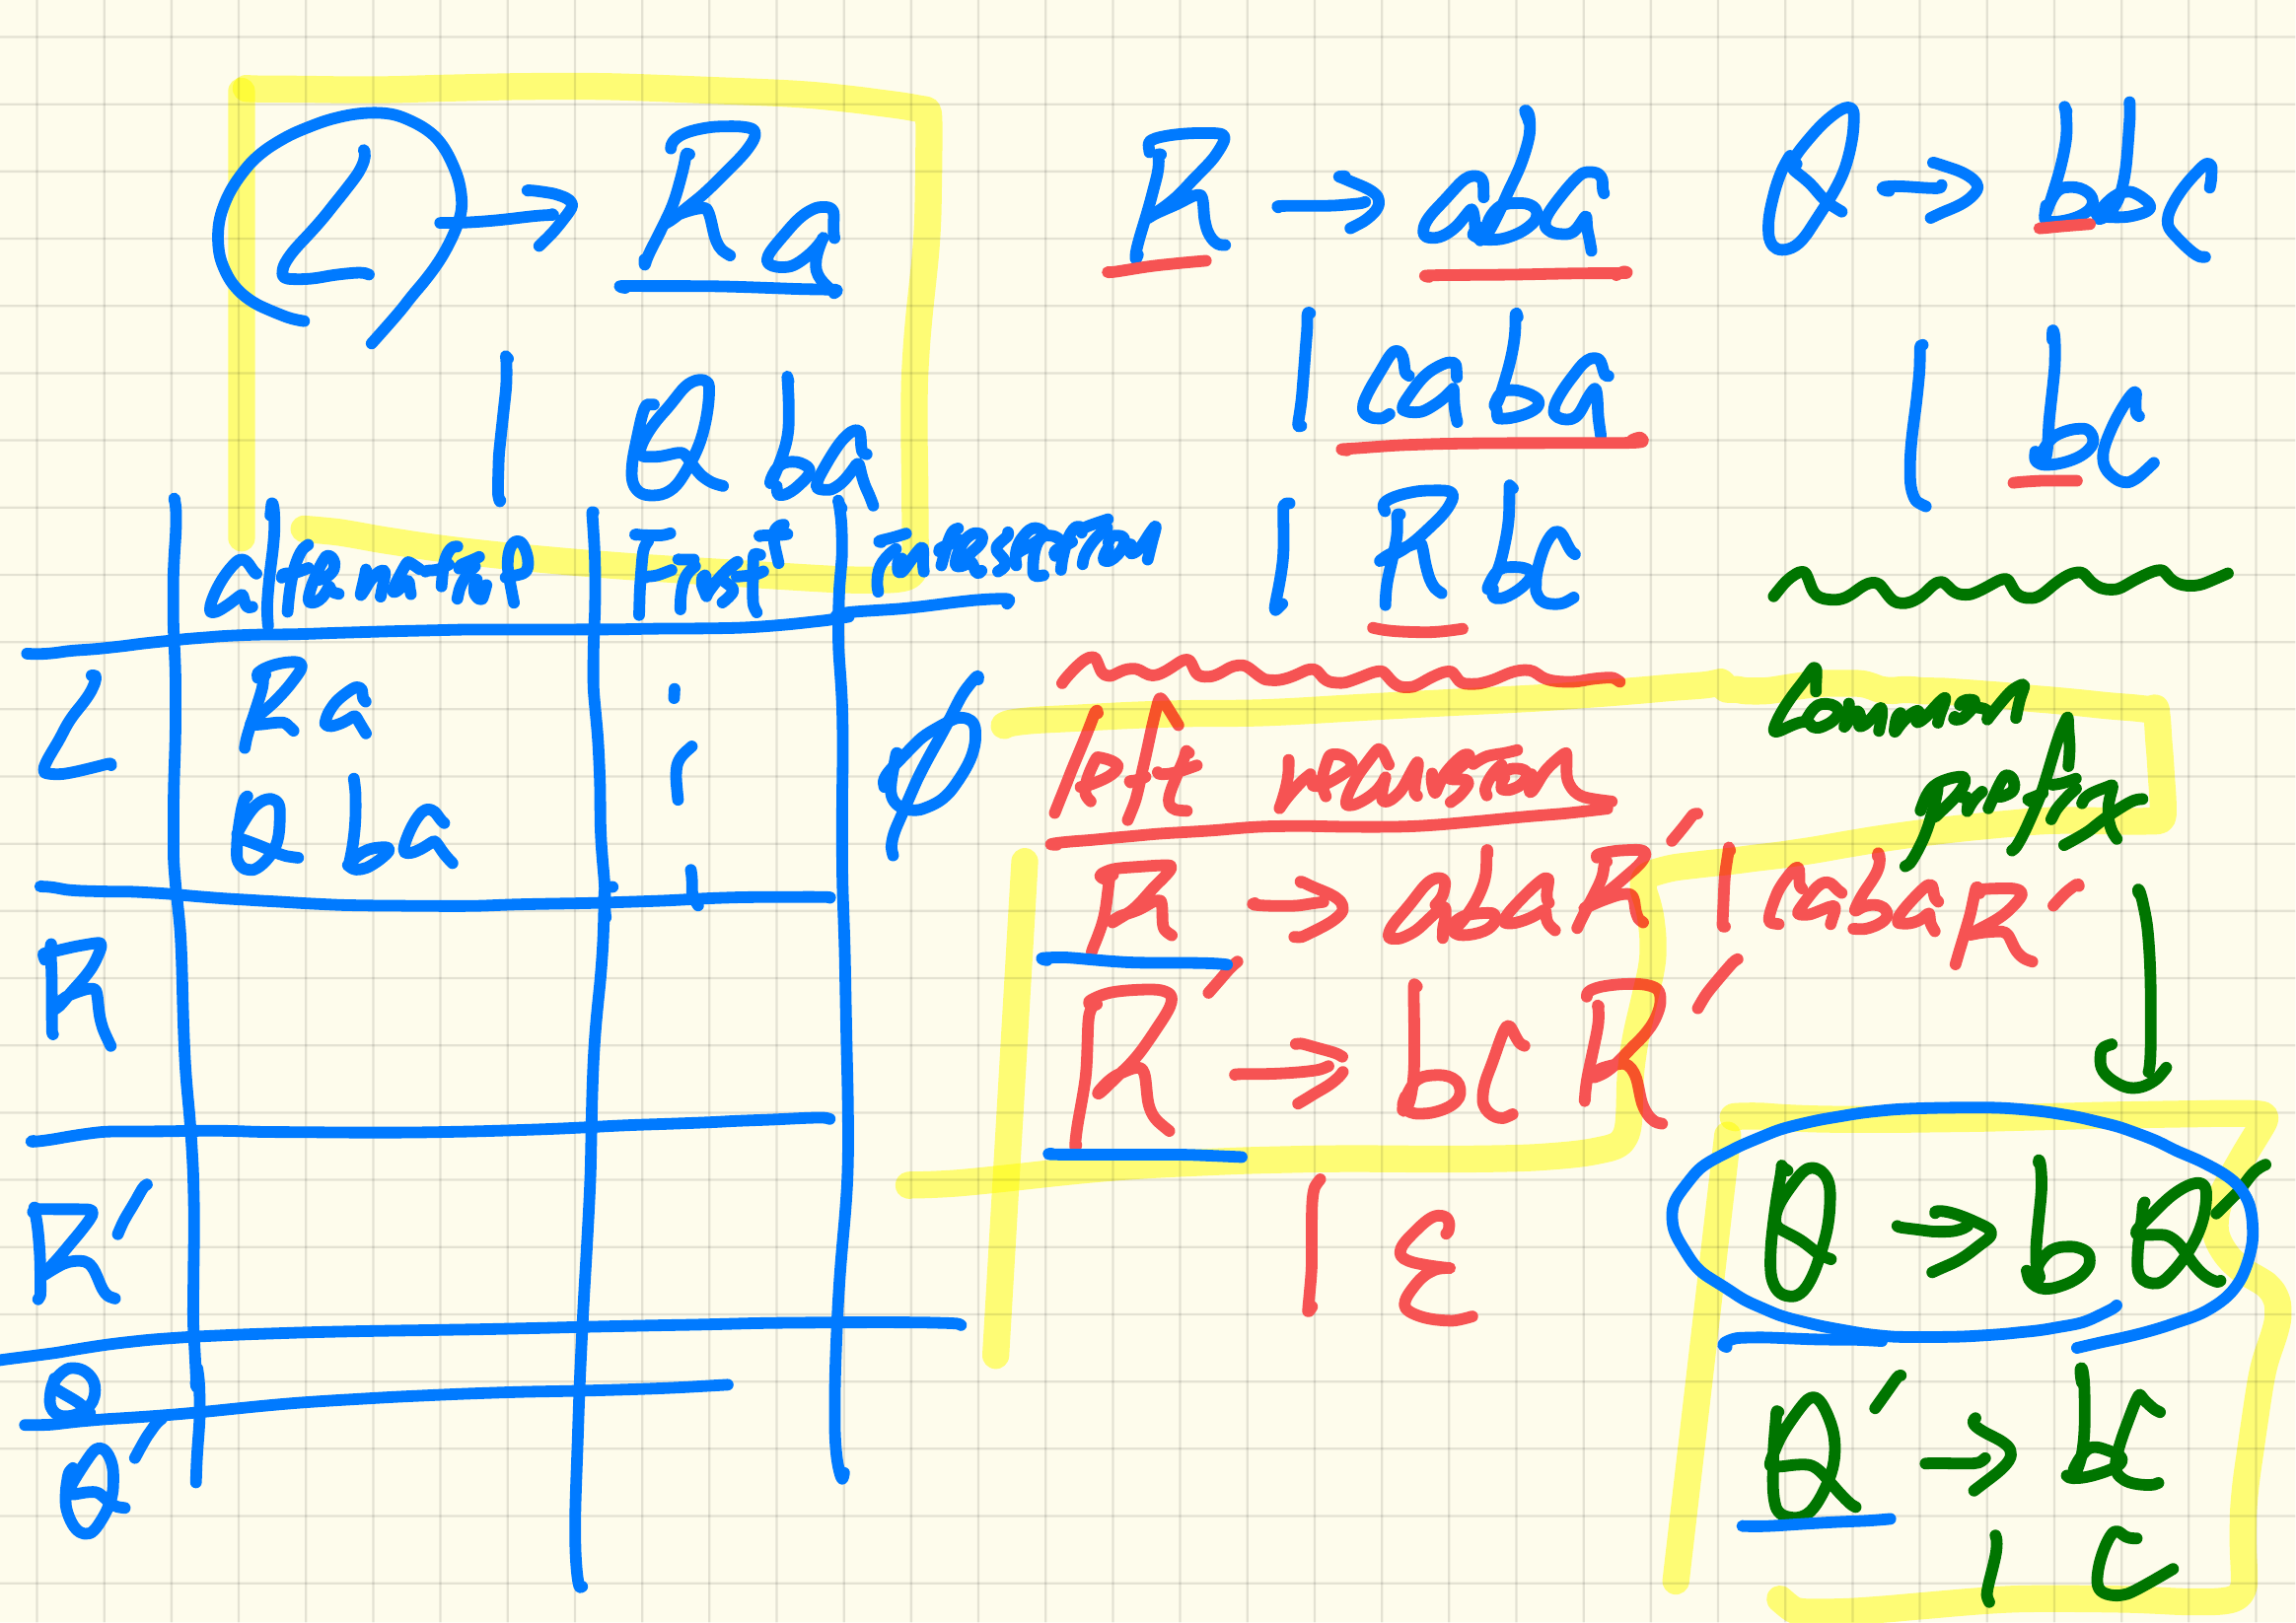 L → Ra
| Qba
R → aba
| caba
| Rbc
Q → bbc
| bc
alternative First intersection
L Ra
Qba
ϕ
R
R'
Q
Q'
left recursion
R → abaR' | cabaR'
R' → bcR'
| ε
common
prefix
Q → bQ'
Q' → bc
| c